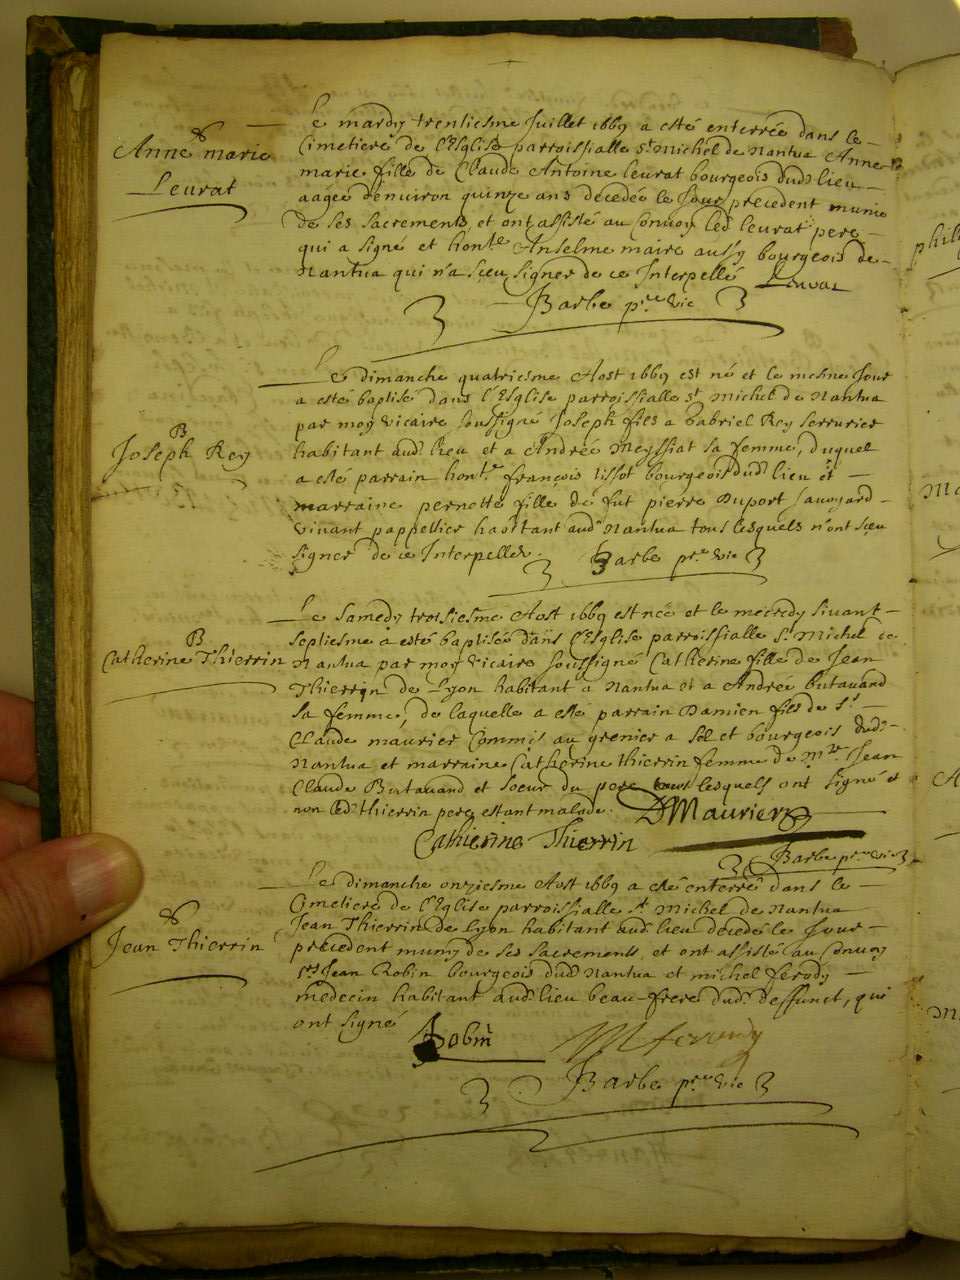 Anne marie
Leurat
Le mardy trentiesme Juillet 1669 a esté enterrée dans le
Cimetiere de l'Esglise parroissialle St Michel de Nantua Anne
marie fille de Claude Antoine leurat bourgeois dud. lieu
aagée d'enuiron quinze ans decedée le Jour precedent munie
de ses Sacrements, et ont assisté au Conuoy led. leurat pere
qui a signé et honle. Anselme maire aussy bourgeois de
Nantua qui n'a sceu signer de ce Interpellé Leurat
Barbe pre. vic
B
Joseph Rey
Le dimanche quatriesme Aost 1669 est né et le mesme Jour
a esté baptisé dans l'Esglise parroissialle St Michel de Nantua
par moy vicaire soussigné Joseph fils a Gabriel Rey serrurier
habitant aud. lieu et a Andrée Meyssiat sa femme, duquel
a esté parrain honle. françois tissot bourgeois dud. lieu et
marraine pernette fille de fut pierre Duport sauoyard
viuant pappettier habitant aud. Nantua tous lesquels n'ont sceu
signer de ce Interpeller. Barbe pre. vic
B
Catherine Thierrin
Le samedy troisiesme Aost 1669 est née et le mecredy siuant
septiesme a esté baptisée dans l'Esglise parroissialle St Michel de
Nantua par moy vicaire soussigné Catherine fille de Jean
Thierrin de Lyon habitant a Nantua et a Andrée butauand
sa femme, de laquelle a esté parrain Damien fils de Sr
Claude maurier Commis au grenier a sel et bourgeois dud.
Nantua et marraine Catherine thierrin femme de Mre. Jean
Claude Butauand et soeur du pere tous lesquels ont signé et
non led. thierrin pere estant malade. DMaurier
Catherine Thierrin
Barbe pre. vic
Jean Thierrin
Le dimanche onziesme Aost 1669 a esté enterré dans le
Cimetiere de l'Eglise parroissialle St Michel de Nantua
Jean Thierrin de Lyon habitant aud. lieu decedé le Jour
precedent muny de ses sacrements, et ont assisté au Conuoy
srs Jean Robin bourgeois dud. Nantua et michel ferody
medecin habitant aud. lieu beau-frere dud. deffunct, qui
ont signé Robin MFerody
Barbe pre. vic